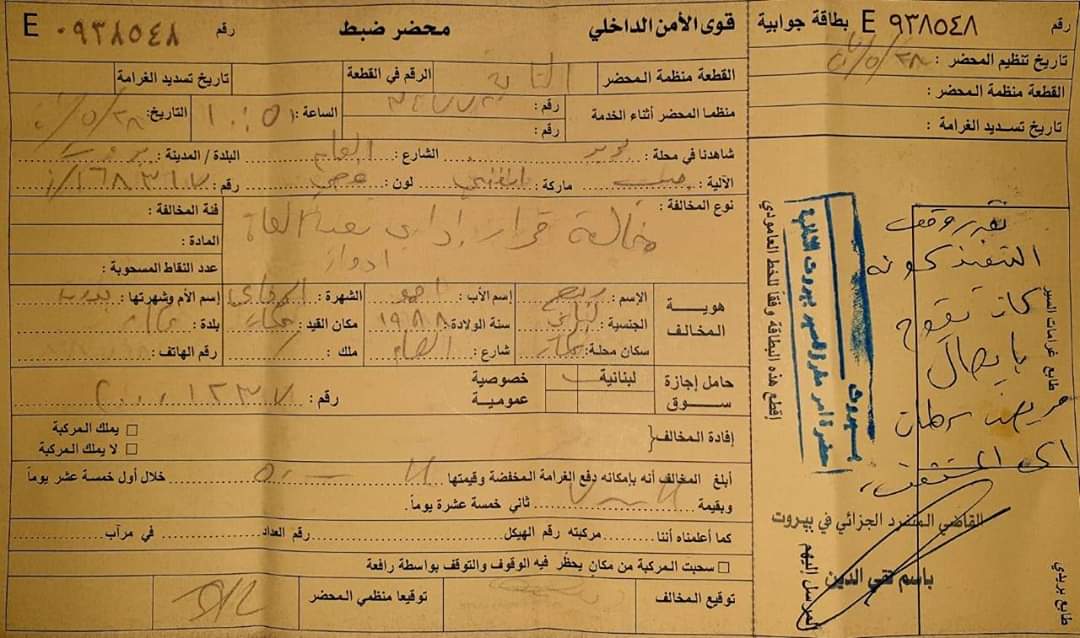 قوى الأمن الداخلي
محضر ضبط
رقم E ٠٩٣٨٥٤٨
القطعة منظمة المحضر
الرقم في القطعة
تاريخ تسديد الغرامة
منظما المحضر أثناء الخدمة
رقم :
رقم :
الساعة : ١٠:٥١
التاريخ :
شاهدنا في محلة : الشارع : العام البلدة / المدينة : بيروت
الآلية : جيب ماركة : لون : فضي رقم : ١٦٨٣١٧/ز
نوع المخالفة :
مخالفة قرار إداري
فئة المخالفة :
المادة :
عدد النقاط المسحوبة :
هوية المخالف
الإسم : ربيع إسم الأب : احمد الشهرة : إسم الأم وشهرتها :
الجنسية : لبناني سنة الولادة : ١٩٨٨ مكان القيد : عكار بلدة :
سكان محلة : عكار شارع : العام ملك : رقم الهاتف :
حامل إجازة سوق
لبنانية
خصوصية
عمومية
رقم : ٢٠٠٠١٢٣٧
إفادة المخالف {
يملك المركبة
لا يملك المركبة
أبلغ المخالف أنه بإمكانه دفع الغرامة المخفضة وقيمتها خلال أول خمسة عشر يوماً
وبقيمة ثاني خمسة عشرة يوماً.
كما أعلمناه أننا مركبته رقم الهيكل رقم العداد في مرآب
سحبت المركبة من مكان يحظّر فيه الوقوف والتوقف بواسطة رافعة
توقيع المخالف
توقيعا منظمي المحضر
بطاقة جوابية
رقم E ٩٣٨٥٤٨
تاريخ تنظيم المحضر :
القطعة منظمة المحضر :
تاريخ تسديد الغرامة :
إقطع هذه البطاقة وفقاً للخط العامودي
حضرة آمر مفرزة سير بيروت الثانية
بيروت
تقرر وقف
التنفيذ كونه
كان يقوم
بإيصال
مريض سرطان
الى المستشفى
القاضي المنفرد الجزائي في بيروت
باسم تقي الدين
طابع غرامات السير
المرسل إليهم
طابع بريدي